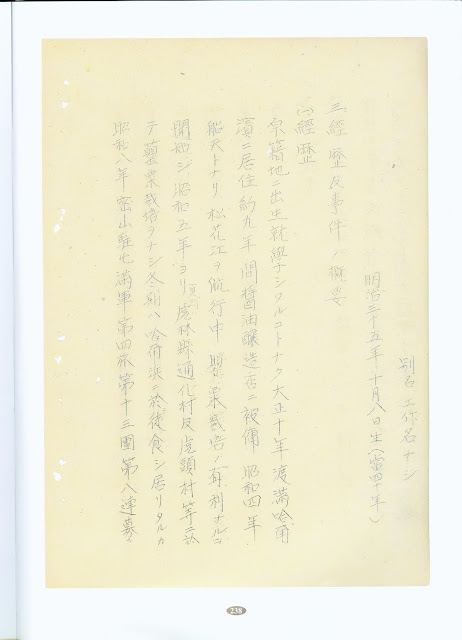 別名 工作名ナシ
明治三十五年十月八日生(當四十年)
三、経歴及事件ノ概要
(一)経歴
原籍地ニ出生就學ナシタルコトナク大正十年渡満哈爾
濱ニ居住約九年間醤油醸造店ニ被傭 昭和四年
船夫トナリ松花江ヲ航行中 罌粟栽培ノ有利ナル
開始シ昭和五年ヨリ虎林縣通化村及虎頭村等ニ於
テ罌粟栽培ヲナシ冬期ハ哈爾濱ニ於 食シ居リタルカ
昭和八年密山駐屯満軍第四旅第十三團第八連募
238